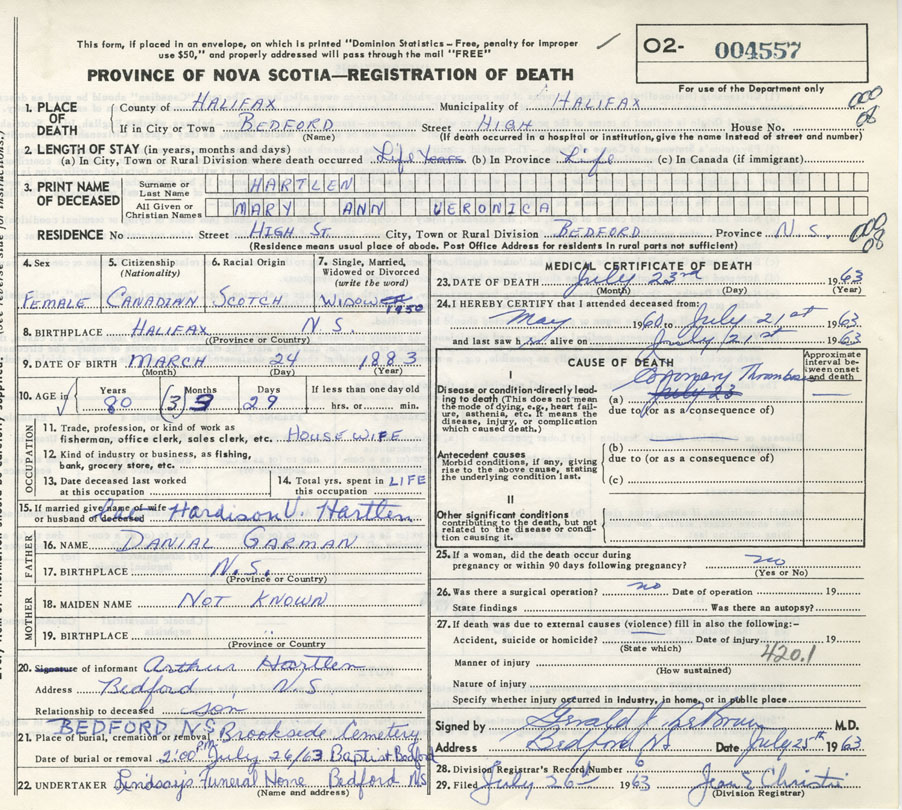 This form, if placed in an envelope, on which is printed "Dominion Statistics—Free, penalty for improper
use $50," and properly addressed will pass through the mail "FREE"
O2- 004557
PROVINCE OF NOVA SCOTIA—REGISTRATION OF DEATH
For use of the Department only
1. PLACE OF DEATH
County of HALIFAX Municipality of HALIFAX
If in City or Town BEDFORD Street HIGH House No.
(Name) (If death occurred in a hospital or institution, give the name instead of street and number)
2. LENGTH OF STAY (in years, months and days)
(a) In City, Town or Rural Division where death occurred Life Years (b) In Province Life (c) In Canada (if immigrant)
3. PRINT NAME OF DECEASED
Surname or Last Name HARTLEN
All Given or Christian Names MARY ANN VERONICA
RESIDENCE No Street HIGH ST. City, Town or Rural Division BEDFORD Province N S
(Residence means usual place of abode. Post Office Address for residents in rural parts not sufficient)
4. Sex
FEMALE
5. Citizenship (Nationality)
CANADIAN
6. Racial Origin
SCOTCH
7. Single, Married, Widowed or Divorced (write the word)
WIDOW
1950
8. BIRTHPLACE HALIFAX N S.
(Province or Country)
9. DATE OF BIRTH MARCH 24 1883
(Month) (Day) (Year)
10. AGE in
Years Months Days If less than one day old
80 3 29 hrs. or min.
OCCUPATION
11. Trade, profession, or kind of work as
fisherman, office clerk, sales clerk, etc. HOUSEWIFE
12. Kind of industry or business, as fishing,
bank, grocery store, etc.
13. Date deceased last worked
at this occupation
14. Total yrs. spent in
this occupation LIFE
15. If married give name of wife
or husband of deceased Hardison V. Hartlen
FATHER
16. NAME DANIAL GARMAN
17. BIRTHPLACE N.S.
(Province or Country)
MOTHER
18. MAIDEN NAME NOT KNOWN
19. BIRTHPLACE "
(Province or Country)
20. Signature of informant Arthur Hartlen
Address Bedford, N S
Relationship to deceased son
BEDFORD N.S.
21. Place of burial, cremation or removal Brookside Cemetery
Date of burial or removal 2:00 PM July 26/63 Baptist Bedford
22. UNDERTAKER Lindsay's Funeral Home Bedford NS
(Name and address)
MEDICAL CERTIFICATE OF DEATH
23. DATE OF DEATH July 23rd 1963
(Month) (Day) (Year)
24. I HEREBY CERTIFY that I attended deceased from:
May 1960 to July 21st 1963
and last saw h alive on July 21st 1963
CAUSE OF DEATH
Approximate interval between onset and death
I
Disease or condition directly leading to death (This does not mean the mode of dying, e.g., heart failure, asthenia, etc. It means the disease, injury, or complication which caused death.)
(a) Coronary Thrombosis
July 23
due to (or as a consequence of)
Antecedent causes
Morbid conditions, if any, giving rise to the above cause, stating the underlying condition last.
(b)
due to (or as a consequence of)
(c)
II
Other significant conditions
contributing to the death, but not related to the disease or condition causing it.
25. If a woman, did the death occur during
pregnancy or within 90 days following pregnancy? no
(Yes or No)
26. Was there a surgical operation? no Date of operation 19
State findings Was there an autopsy?
27. If death was due to external causes (violence) fill in also the following:-
Accident, suicide or homicide? Date of injury 19
(State which)
420.1
Manner of injury
(How sustained)
Nature of injury
Specify whether injury occurred in industry, in home, or in public place
Signed by Gerald J. M.D.
Address Bedford, NS Date July 25th 1963
28. Division Registrar's Record Number 6
29. Filed July 26th 1963 Jean E Christie
(Division Registrar)